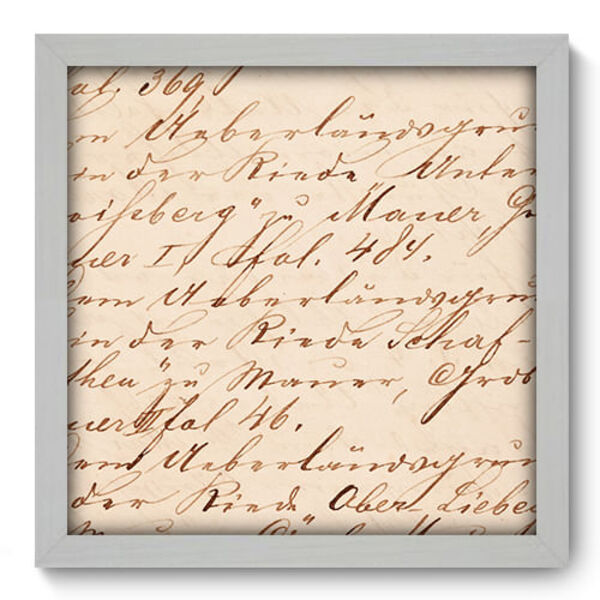 fol. 369,
em Ueberländsgru
in der Riede Unter
eißberg" zu Mauer, Gr
uer I, fol. 484.
dem Ueberländsgru
in der Riede Schaf-
then" zu Mauer, Grob
uer II fol 46.
dem Ueberländsgrun
der Riede Ober-Liebe